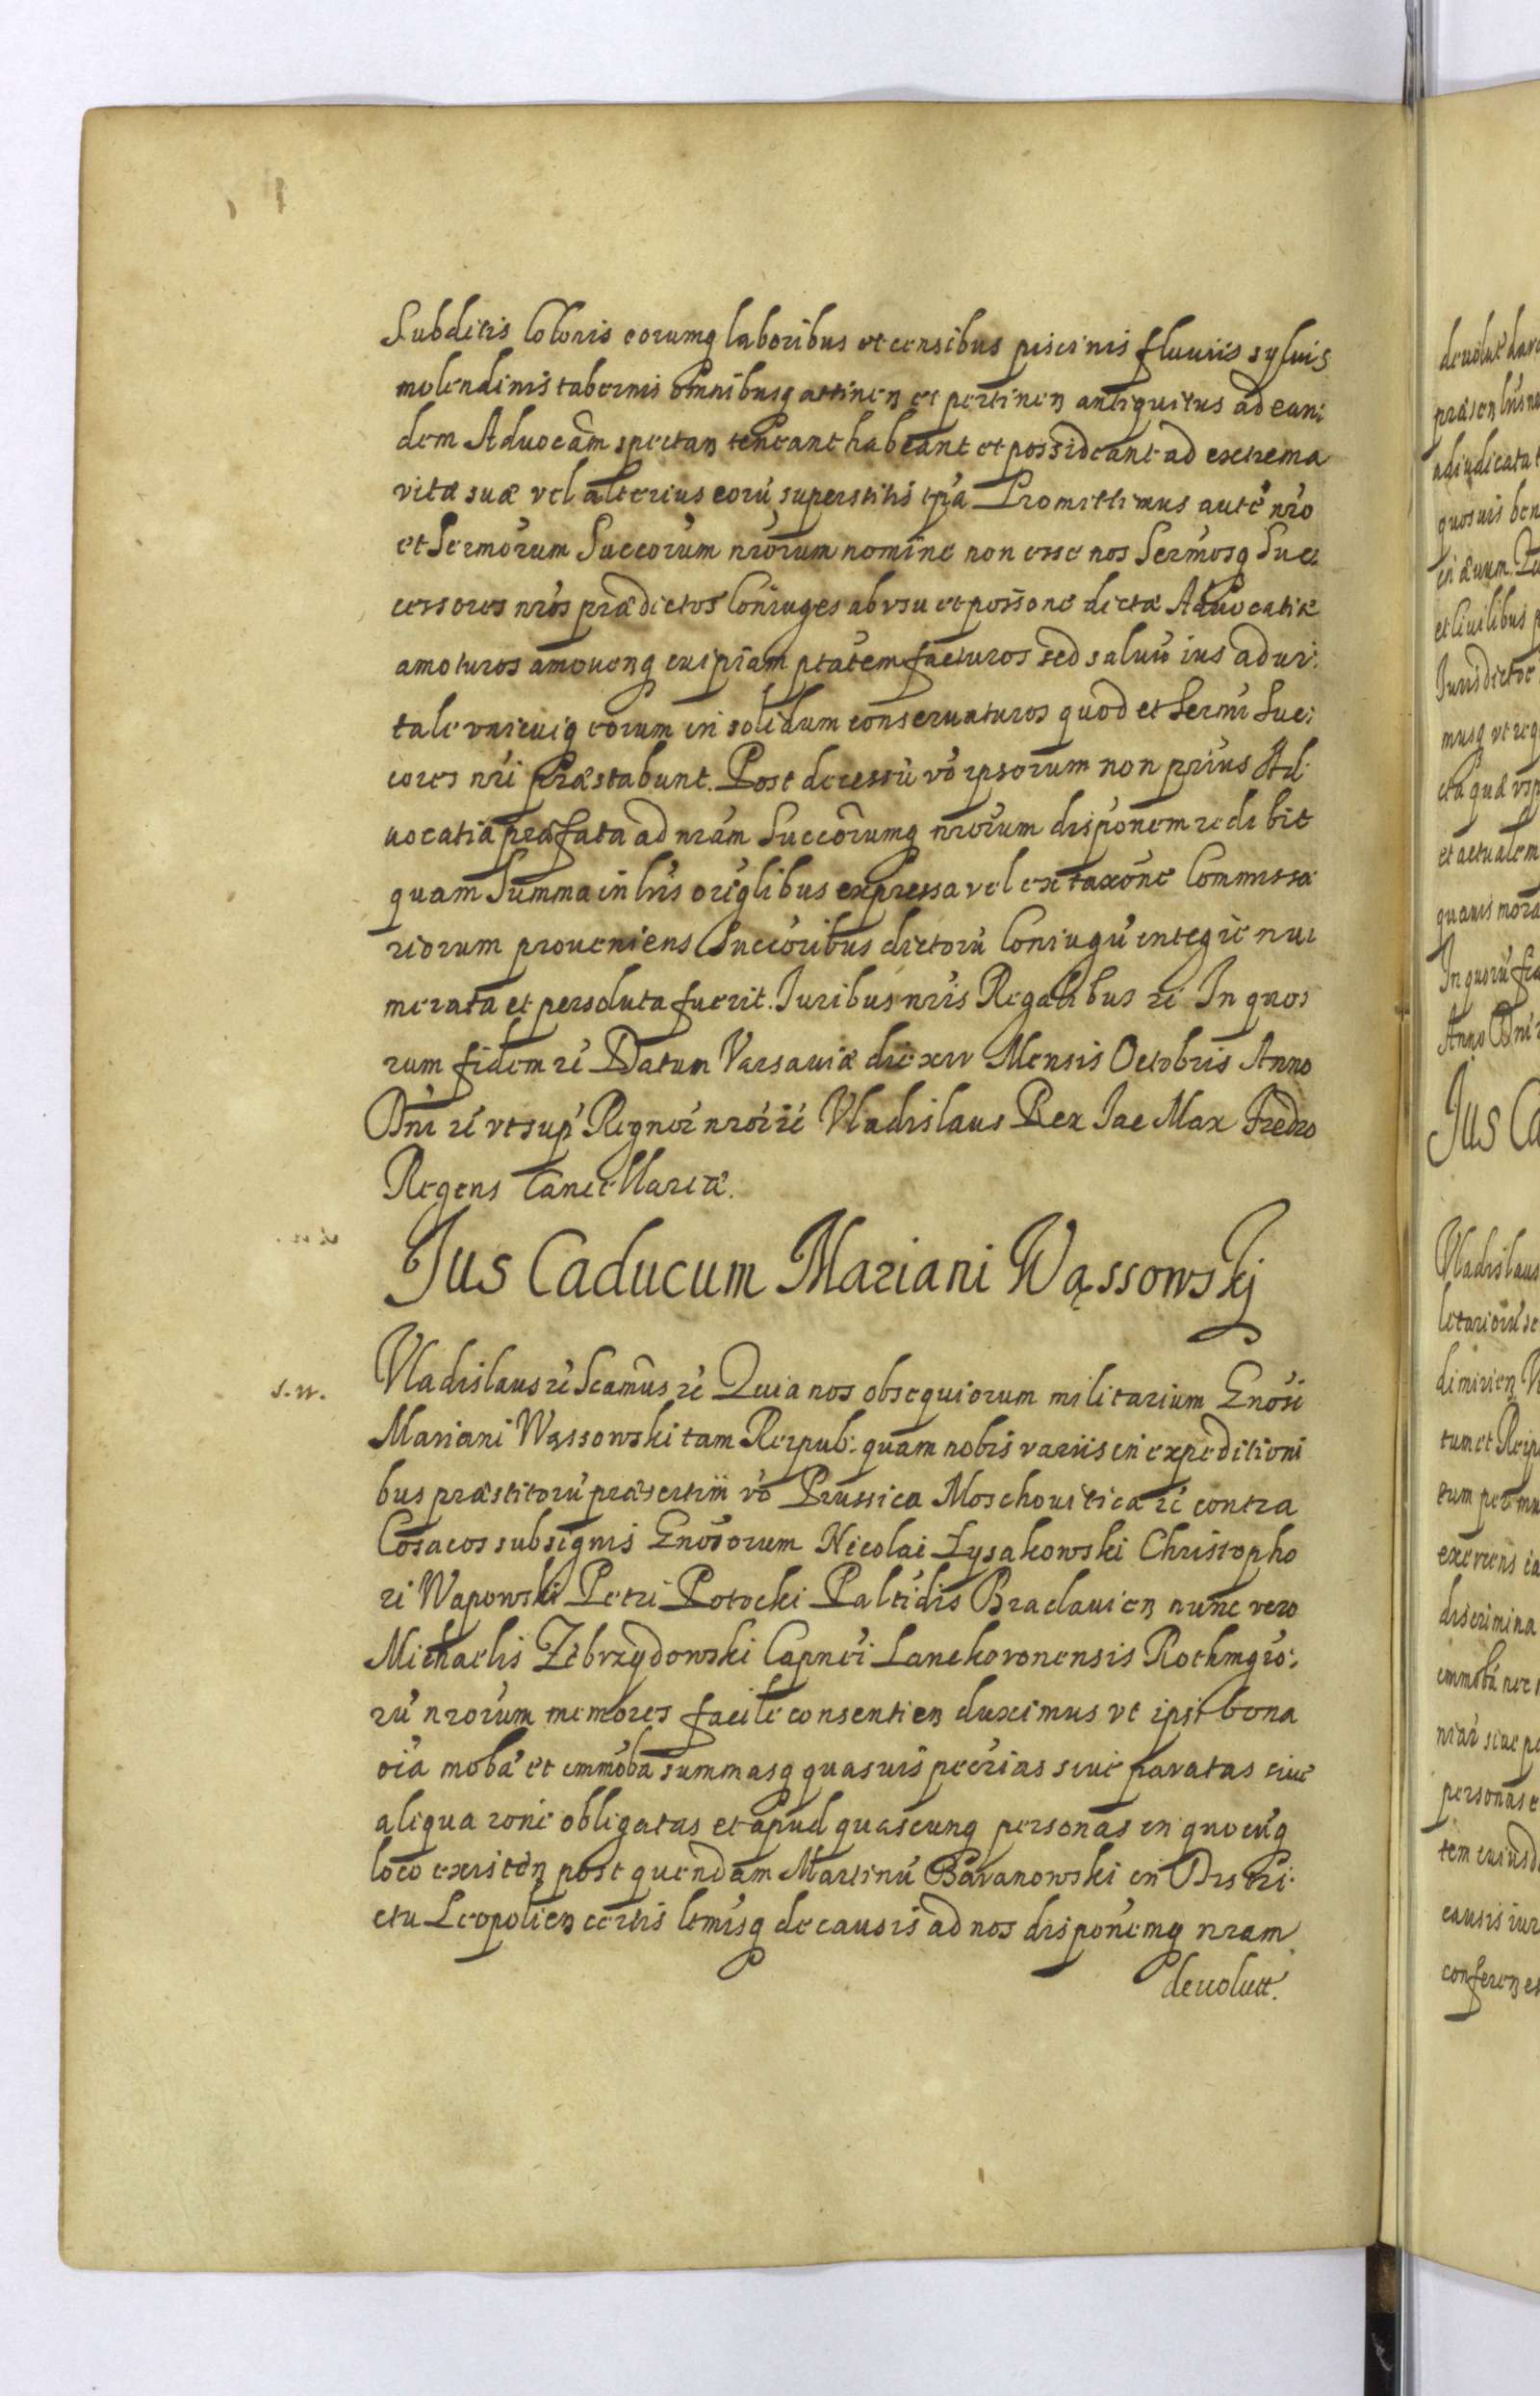 Subditis Colonis eorumq laboribus et censibus piscinis fluuiis syluis
molendinis tabernis omnibusq attinen et pertinen antiquitus ad ean:
dem Aduocãm spectan teneant habeant et possideant ad extrema
vitæ suæ vel alterius eorũ superstitis tpã Promittimus autẽ nro
et Sermorum Succorum nrorum nomine non esse nos Sermosq Suc:
cessores nros prædictos Coniuges ab vsu et possone dictæ Aduocatiæ
amoturos amouenq cuipiam ptatem facturos sed saluũ ius ad vi:
tale vnicuiq eorum in solidum conseruaturos quod et Sermi Suc:
cores nri præstabunt. Post decessũ vo ipsorum non prius Ad:
uocatia præfata ad nram Succorumq nrorum disponem redibit
quam Summa in lris origlibus expressa vel ex taxone Commissa
riorum proueniens Succoribus dictorũ Coniugũ integrè nu:
merata et persoluta fuerit. Juribus nris Regalibus rc In quo:
rum fidem rc Datum Varsauiæ die xıv Mensis Octobris Anno
Dni rc vt sup Regnor nror rc Vladislaus Rex Jac Max Fredro
Regens Cancellariæ.
Jus Caducum Mariani Wąssowskj
S. W.
Vladislaus rc Scamus rc Quia nos obsequiorum militarium Gnosi
Mariani Wąssowski tam Reipub: quam nobis variis in expeditioni
bus præstitorũ præsertim vo Prussica Moschouitica rc contra
Cosacos sub signis Gnosorum Nicolai Łysakowski Christopho
ri Wapowski Petri Potocki Paltidis Braclauien nunc vero
Michaelis Zebrzydowski Capnei Lanckoronensis Rothmgro:
rũ nrorum memores facile consentien duximus vt ipsi bona
oia moba et immoba summasq quasuis pecrias siue paratas siue
aliqua rone obligatas et apud quascunq personas in quocũq
loco existen post quendam Martinũ Baranowski in Distri:
ctu Leopolien certis ltmisq de causis ad nos disponemq nram
deuolut.